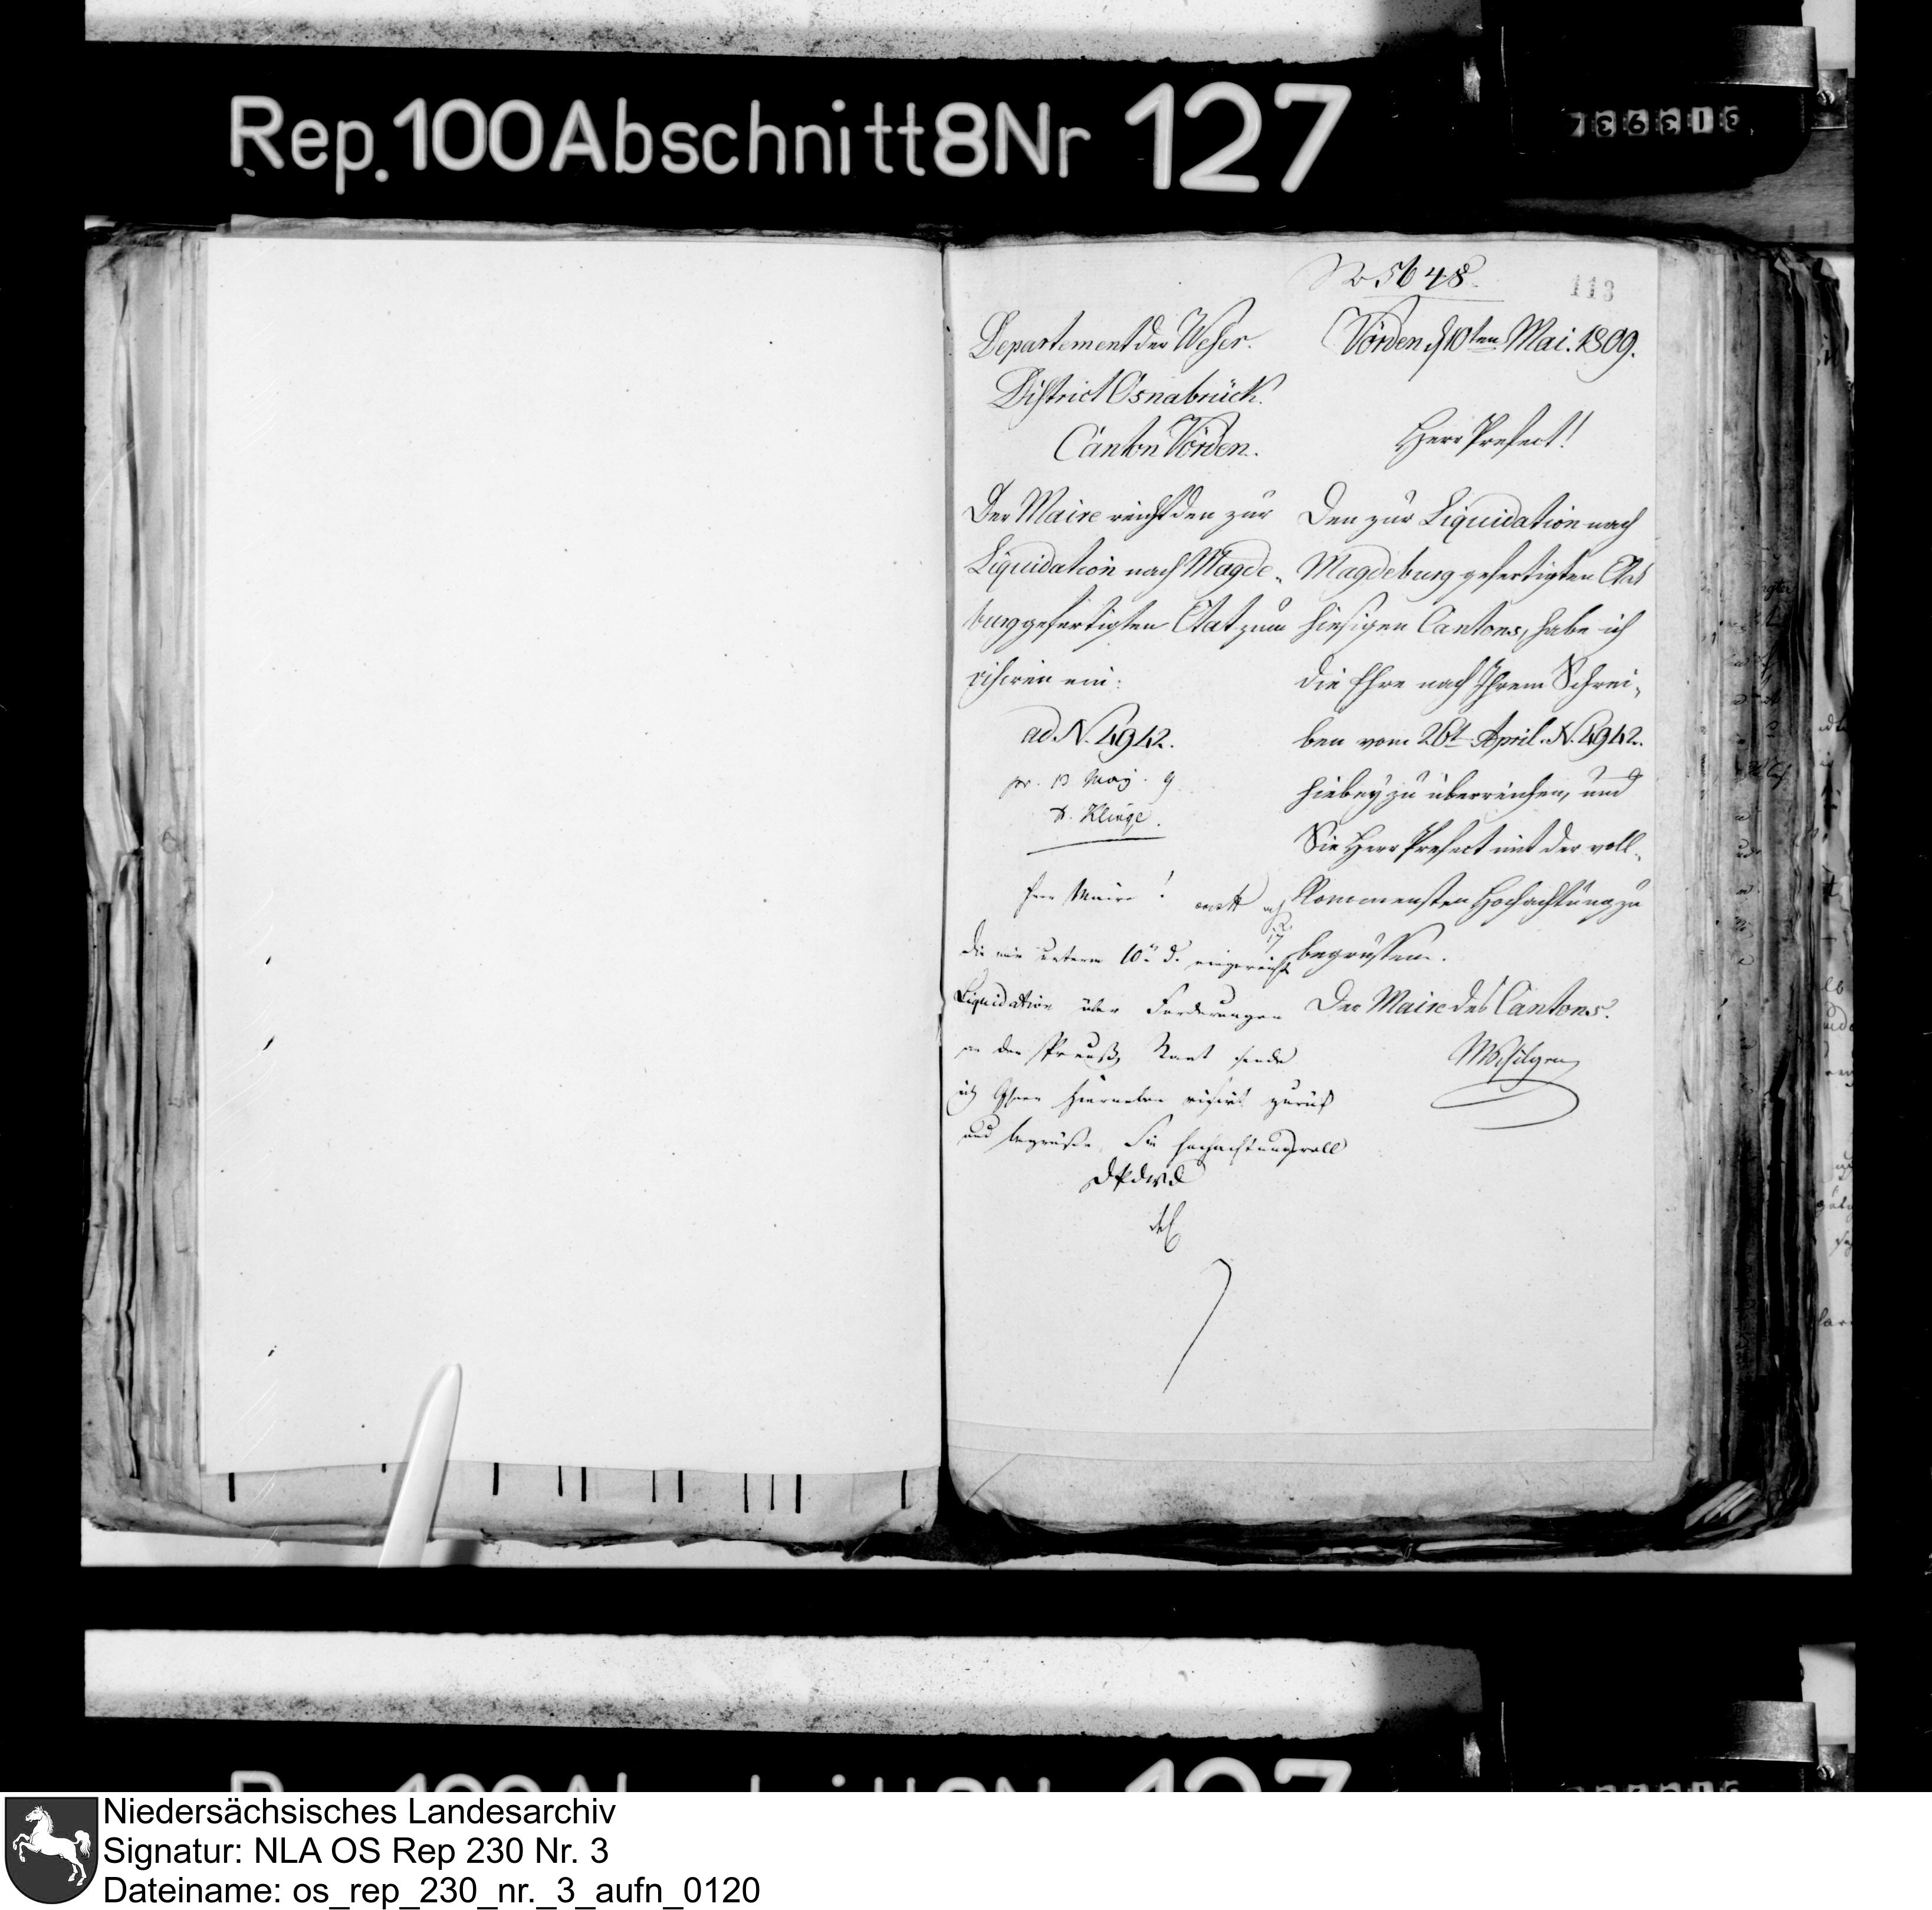 Rep. 100 Abschnitt 8 Nr 127
No 5648.
113
Departement der Weser.
District Osnabrück.
Canton Vörden.
Vörden d 10ten Mai. 1809.
Herr Prefect!
Der Maire reicht den zur
Liquidation nach Magde-
burg gefertigten Etat zum
visiren ein:
ad. N. 4942.
pr. 13 May. 9
Klinge.
Den zur Liquidation nach
Magdeburg gefertigten Etat
hiesigen Cantons, habe ich
die Ehre nach Ihrem Schrei-
ben vom 26t April. N. 4942.
hiebey zu überreichen, und
Sie Herr Prefect mit der voll-
kommensten Hochachtung zu
begrüssen.
Der Maire des Cantons.
Herr Maire!
die mir unterm 10n d. eingereichte
Liquidation über Forderungen
an den Preuß. Staat sende
ich Ihnen hierneben visirt zurück
und begrüße Sie hochachtungsvoll
DPdWD
Niedersächsisches Landesarchiv
Signatur: NLA OS Rep 230 Nr. 3
Dateiname: os_rep_230_nr._3_aufn_0120